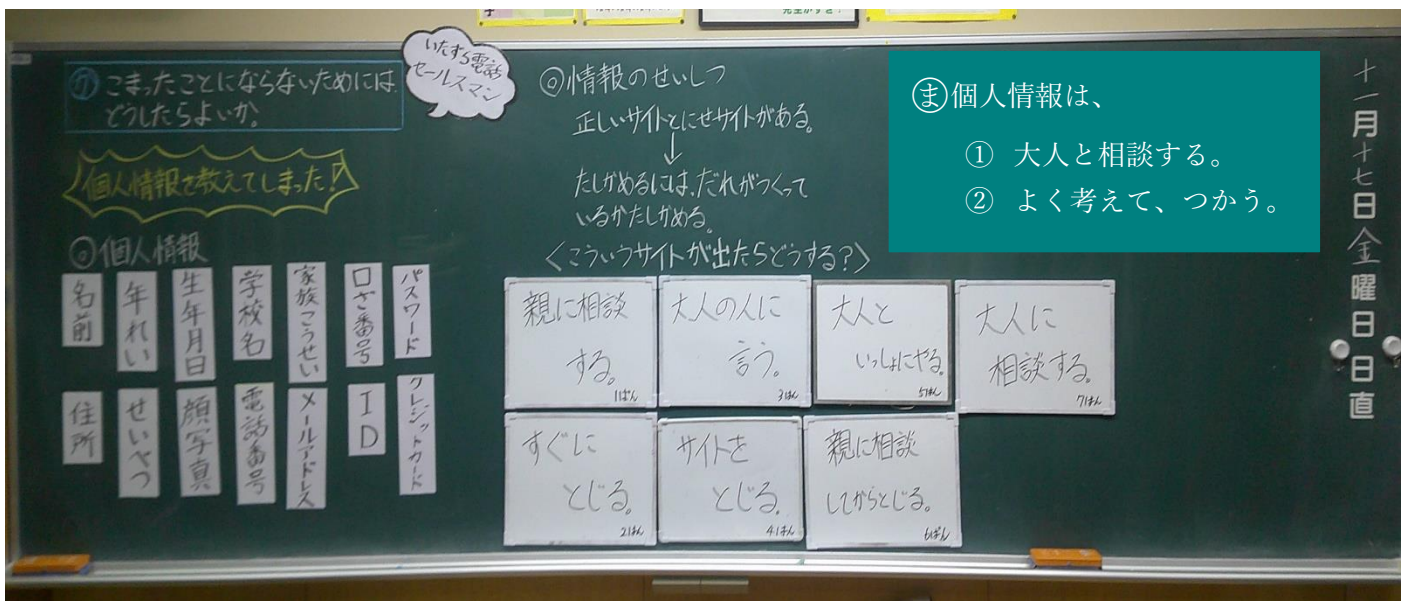 ㋗こまったことにならないためには、
どうしたらよいか。
いたずら電話
セールスマン
個人情報を教えてしまった!
◎個人情報
名前
年れい
生年月日
学校名
家族こうせい
口ざ番号
パスワード
住所
せいべつ
顔写真
電話番号
メールアドレス
ID
クレジットカード
◎情報のせいしつ
正しいサイトとにせサイトがある。
↓
たしかめるには、だれがつくって
いるかたしかめる。
<こういうサイトが出たらどうする?>
親に相談
する。
1ぱん
大人の人に
言う。
3ぱん
大人と
いっしょにやる。
5はん
大人に
相談する。
7はん
すぐに
とじる。
2はん
サイトを
とじる。
4はん
親に相談
してからとじる。
6ぱん
㋮個人情報は、
① 大人と相談する。
② よく考えて、つかう。
十一月十七日金曜日日直